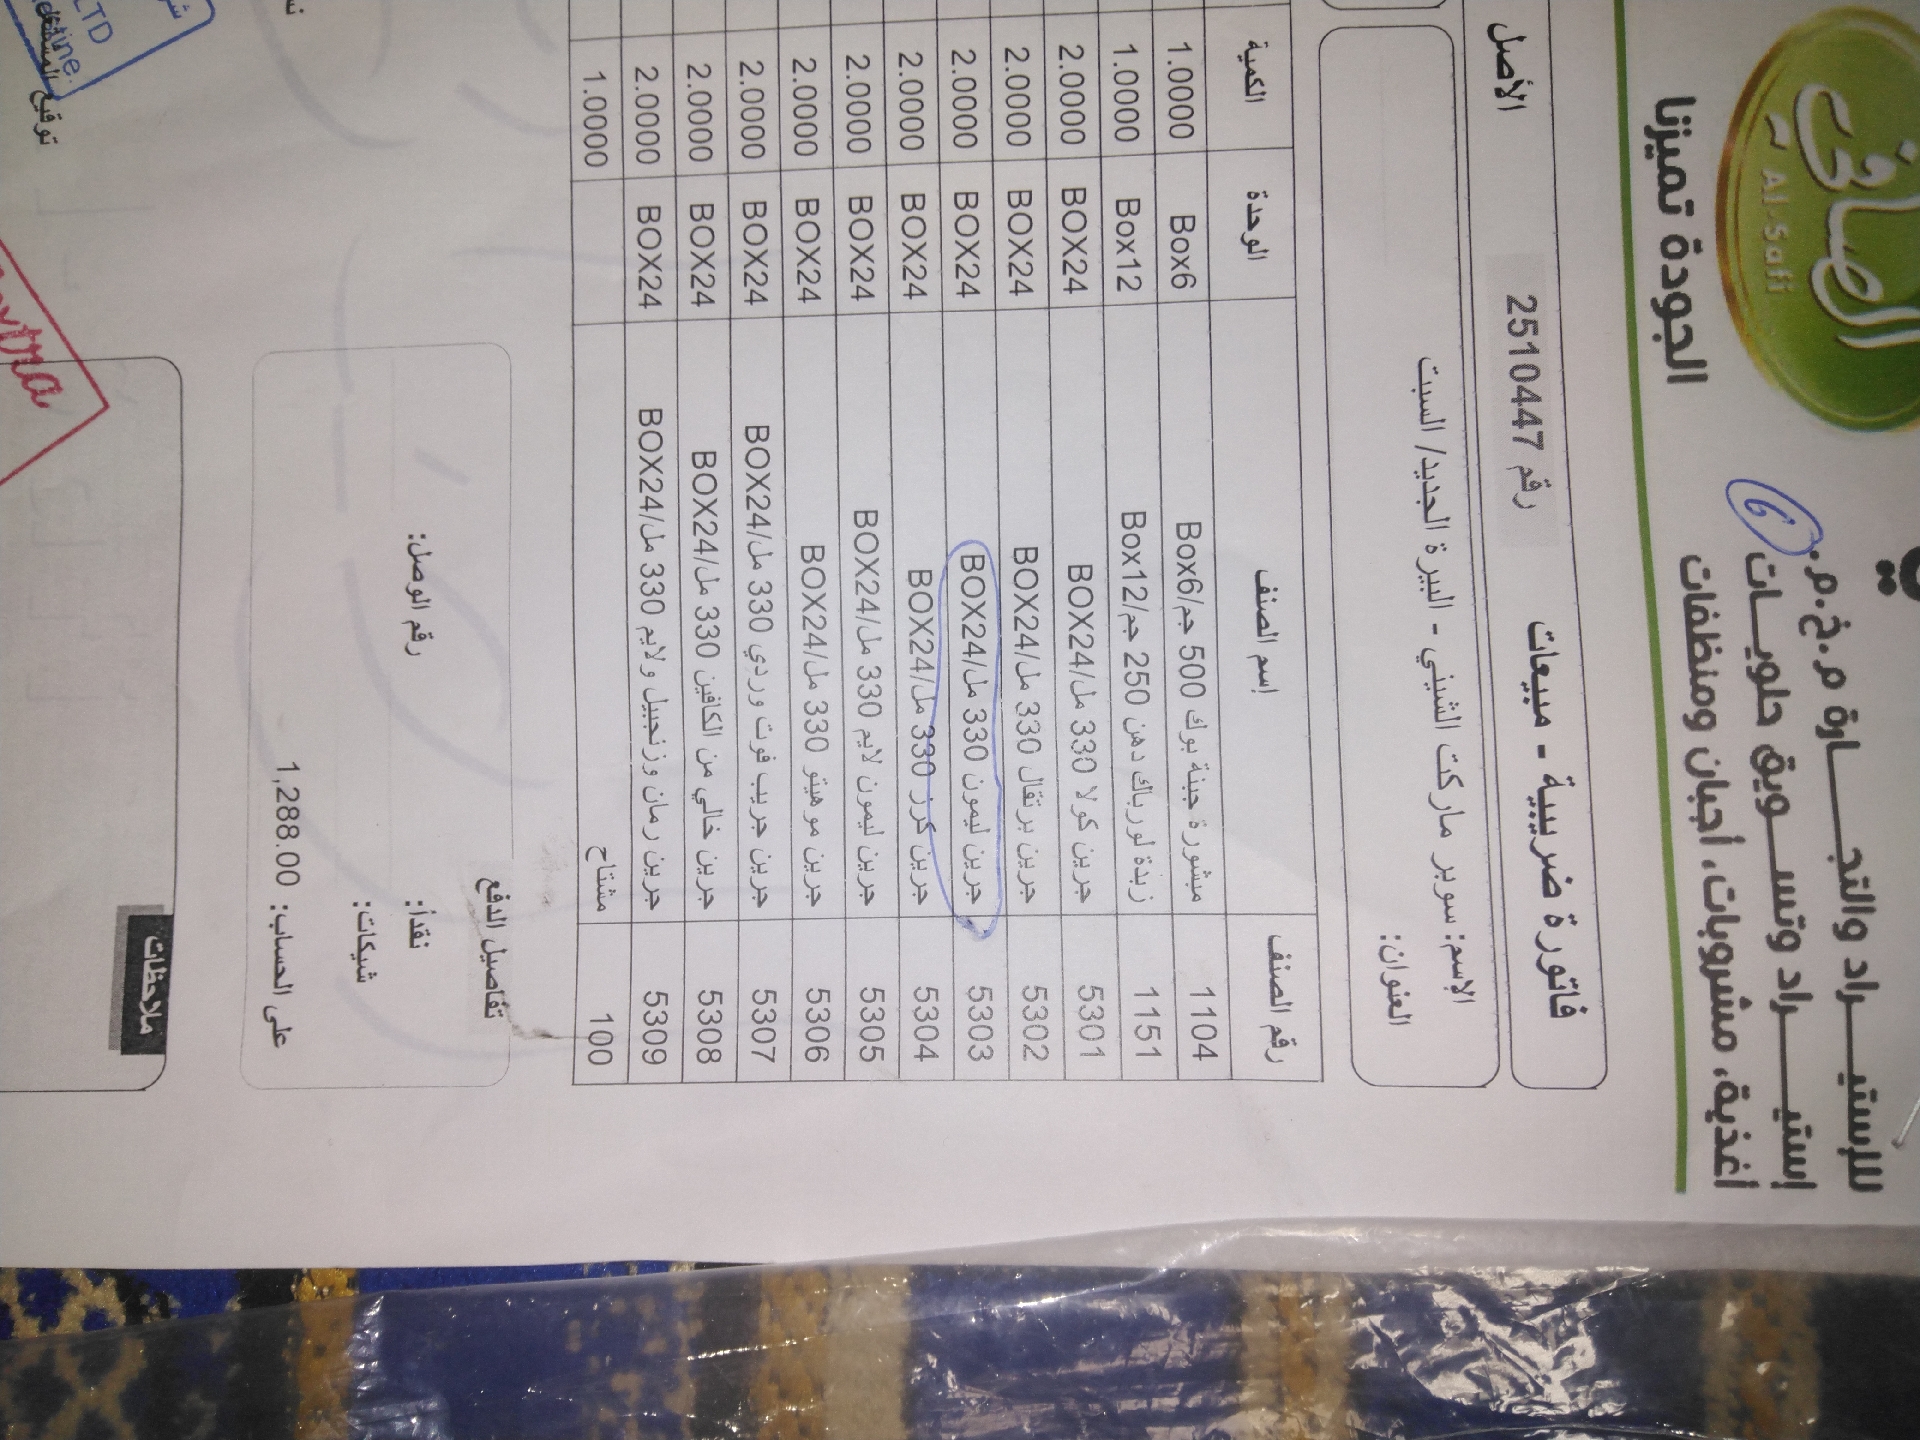 الصافي
AL-Safi
الجودة تميزنا
للإستيـــراد والتجـــــارة م.خ.م.
إستيـــــراد وتســـويق حلويـــات
أغذية، مشروبات، أجبان ومنظفات
6
فاتورة ضريبية - مبيعات رقم 2510447 الأصل
الإسم: سوبر ماركت الشيني - البيرة الجديد/ السبت
العنوان:
رقم الصنف إسم الصنف الوحدة الكمية
1104 مبشورة جبنة بوك 500 جم/Box6 Box6 1.0000
1151 زبدة لورباك دهن 250 جم/Box12 Box12 1.0000
5301 جرين كولا 330 مل/BOX24 BOX24 2.0000
5302 جرين برتقال 330 مل/BOX24 BOX24 2.0000
5303 جرين ليمون 330 مل/BOX24 BOX24 2.0000
5304 جرين كرز 330 مل/BOX24 BOX24 2.0000
5305 جرين ليمون لايم 330 مل/BOX24 BOX24 2.0000
5306 جرين موهيتو 330 مل/BOX24 BOX24 2.0000
5307 جرين جريب فوت وردي 330 مل/BOX24 BOX24 2.0000
5308 جرين خالي من الكافين 330 مل/BOX24 BOX24 2.0000
5309 جرين رمان وزنجبيل ولايم 330 مل/BOX24 BOX24 2.0000
100 مشتاح 1.0000
تفاصيل الدفع
نقدأ: رقم الوصل:
شيكات:
على الحساب: 1,288.00
ملاحظات
توقيع المستلم
LTD